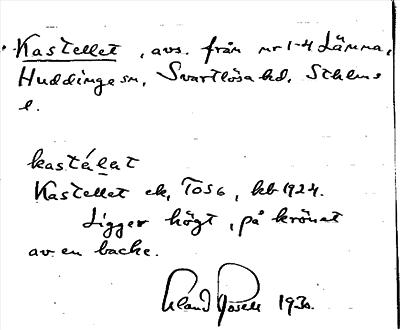 Kastellet, avs. från nr 1-4 Lämna,
Huddinge sn, Svartlösa hd, Sthlms
l.
kastálat
Kastellet ek, TOS6, kb 1924.
Ligger högt, på krönet
av en backe.
Erland Rosell 1930.